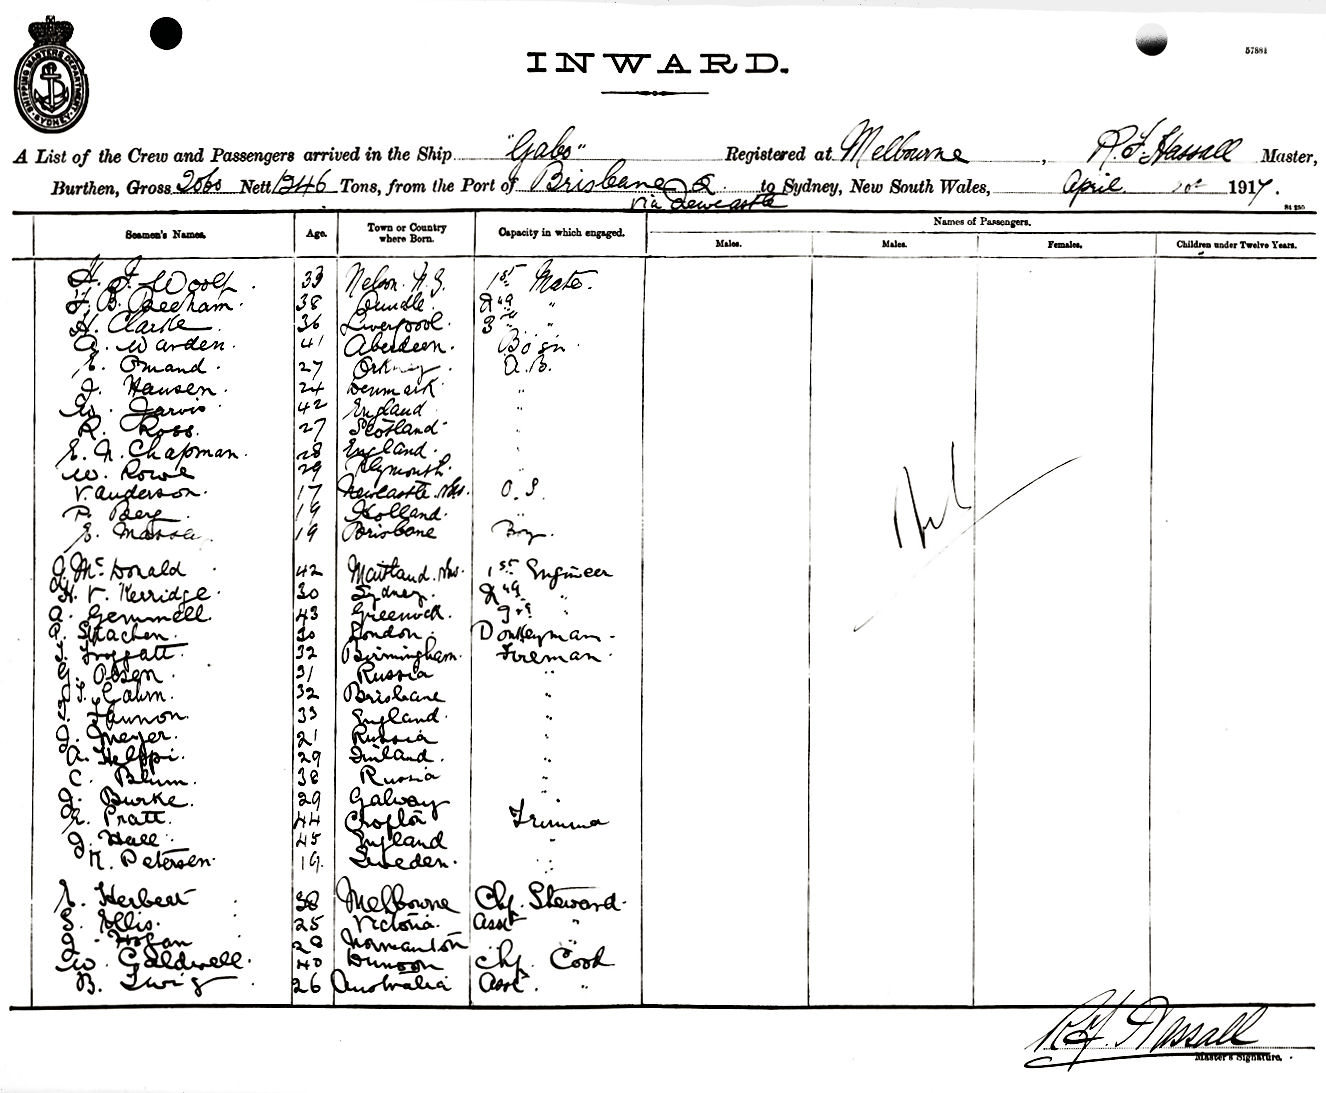 SHIPPING MASTERS DEPARTMENT SYDNEY
57881
INWARD.
A List of the Crew and Passengers arrived in the Ship "Gabo" Registered at Melbourne, R. F. Hassall Master,
Burthen, Gross 2060 Nett 1246 Tons, from the Port of Brisbane to Sydney, New South Wales, April 1917.
via Newcastle
Seamen's Names. Age. Town or Country where Born. Capacity in which engaged. Names of Passengers.
Males. Males. Females. Children under Twelve Years.
H. J. Woolf. 33 Nelson N.Z. 1st Mate.
F. B. Beecham. 38 Oundle. 2nd "
H. Clarke. 36 Liverpool. 3rd "
A. Warden. 41 Aberdeen. Bosn.
E. Omand. 27 Orkney. A.B.
J. Hansen. 24 Denmark "
W. Jarvis 42 England "
R. Ross. 27 Scotland "
E. N. Chapman. 28 England. "
W. Rowe 29 Plymouth. "
V. Anderson. 17 Newcastle. NSW. O.S.
P. Berg 19 Holland. "
E. 19 Brisbane Boy.
J. McDonald 42 Maitland. NSW. 1st Engineer
H. V. Kerridge. 30 Sydney. 2nd "
A. Gemmell. 43 Greenock. 3rd "
P. Strachen. 30 London. Donkeyman.
Froggatt. 32 Birmingham. Fireman.
G. Olsen. 31 Russia "
Cahm. 32 Brisbane "
Hannon. 33 England. "
J. Meyer. 21 Russia "
A. Helppi. 29 Finland. "
C. Blum. 38 Russia "
J. Burke. 29 Galway "
E. Pratt. 44 Crofton Trimmer
J. Hall. 45 England "
K. Petersen. 19 Sweden. "
E. Herbert 38 Melbourne Chf. Steward.
S. Ellis. 25 Victoria. Asst "
J. Hogan 28 Normanton " "
W. Caldwell. 40 Dunoon Chf. Cook
B. Twig 26 Australia Asst. "
R. F. Hassall
Master's Signature.